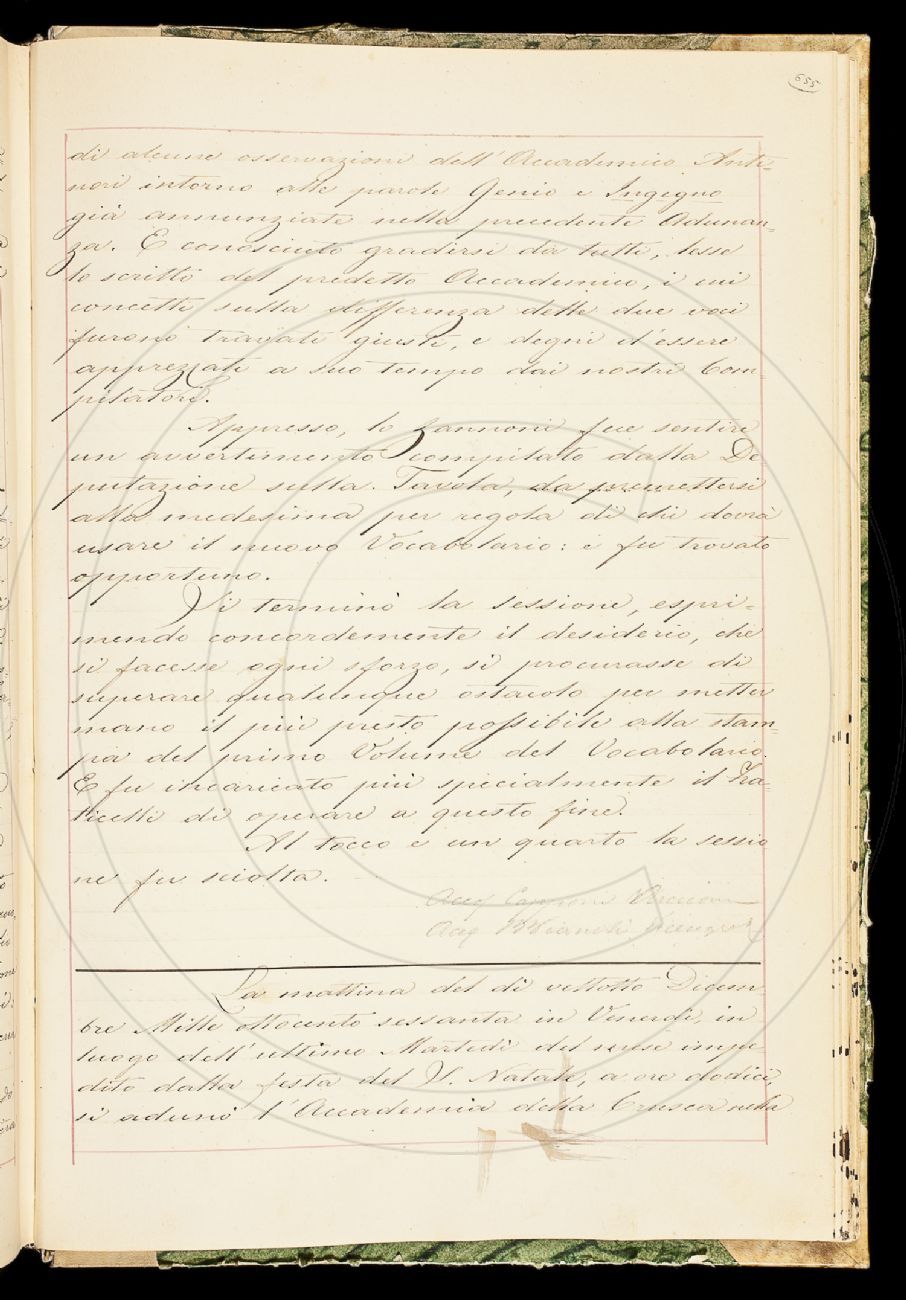 655
di alcune osservazioni dell'Accademico Anti-
nori intorno alle parole Genio e Ingegno
già annunziate nella precedente Adunan-
za. E conosciuto gradirsi da tutti, lesse
lo scritto del predetto Accademico, i cui
concetti sulla differenza delle due voci
furono trovate giuste, e degni d'essere
apprezzate a suo tempo dai nostri Com
pilatori.
Appresso, lo Zannoni fece sentire
un avvertimento compilato dalla De
putazione sulla Tavola, da premettersi
alla medesima per regola di chi dovrà
usare il nuovo Vocabolario: e fu trovato
opportuno.
Si terminò la sessione, espri-
mendo concordemente il desiderio, che
si facesse ogni sforzo, si procurasse di
superare qualunque ostacolo per metter
mano il più presto possibile alla stam-
pa del primo Volume del Vocabolario.
E fu incaricato più specialmente il Fra-
ticelli di operare a questo fine.
Al tocco e un quarto la sessio
ne fu sciolta.
La mattina del di vettotto Dicem
bre Mille ottocento sessanta in Venerdì, in
luogo dell'ultimo Martedì del mese impe-
dito dalla festa del S. Natale, a ore dodici,
si adunò l'Accademia della Crusca nella